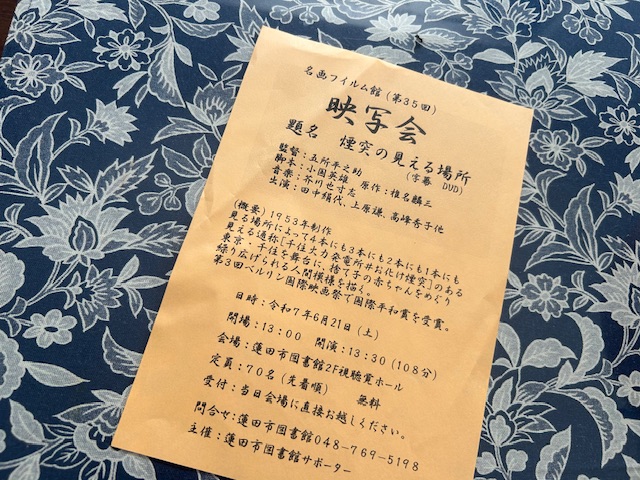 名画フイルム館(第35回)
映写会
題名 煙突の見える場所
(字幕 DVD)
監督:五所平之助
脚本:小國英雄 原作:椎名麟三
音楽:芥川也寸志
出演:田中絹代、上原謙、高峰秀子他
(概要)1953年制作
見る場所によって4本にも3本にも2本にも1本にも
見える通称[千住火力発電所#お化け煙突]のある
東京・千住を舞台に、捨て子の赤ちゃんをめぐり
繰り広げられる人間模様を描く。
第3回ベルリン国際映画祭で国際平和賞を受賞。
日時:令和7年6月21日(土)
開場:13:00 開演:13:30(108分)
会場:蓮田市図書館2F視聴覚ホール
定員:70名(先着順) 無料
受付:当日会場に直接お越しください。
問合せ:蓮田市図書館048-769-5198
主催:蓮田市図書館サポーター